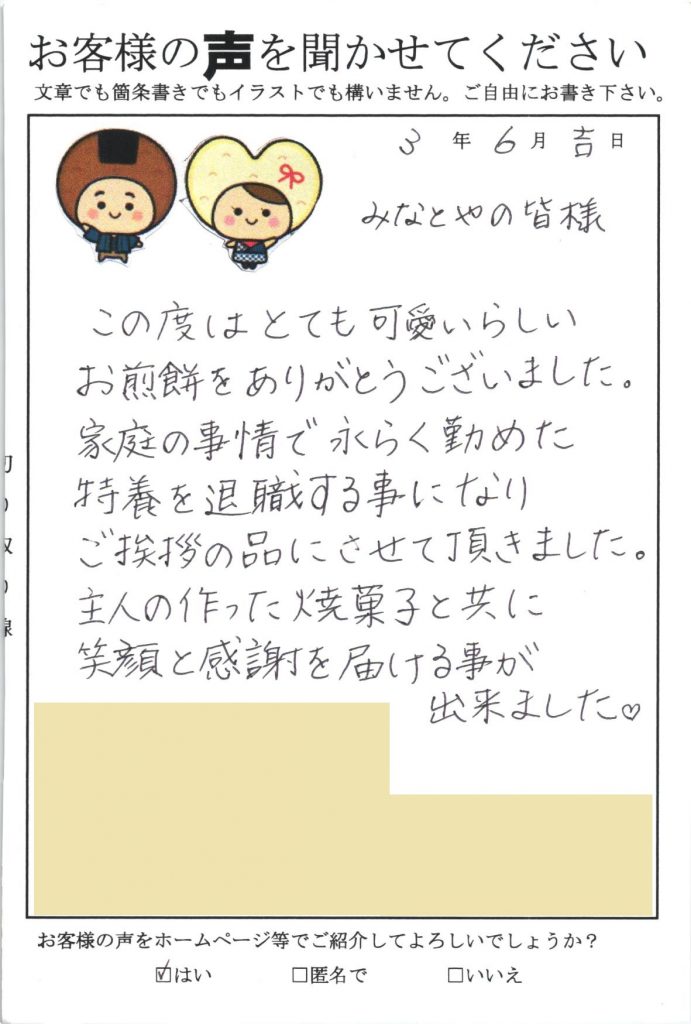 お客様の声を聞かせてください
文章でも箇条書きでもイラストでも構いません。ご自由にお書き下さい。
3年6月吉日
みなとやの皆様
この度はとても可愛いらしい
お煎餅をありがとうございました。
家庭の事情で永らく勤めた
特養を退職する事になり
ご挨拶の品にさせて頂きました。
主人の作った焼菓子と共に
笑顔と感謝を届ける事が
出来ました♡
お客様の声をホームページ等でご紹介してよろしいでしょうか?
☑はい □匿名で □いいえ